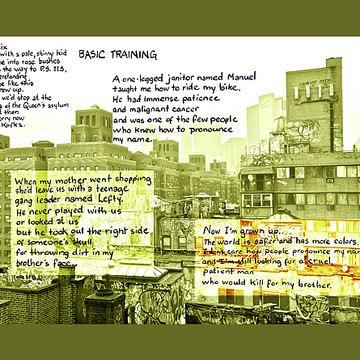 ix
with a pale, skinny kid
be into rose bushes
the way to P.S. 115,
erstanding
be like this
rew up.
we'd stop at the
g of the Queen's asylum
d then
orry now
Kafka.
BASIC TRAINING
A one-legged janitor named Manuel
taught me how to ride my bike.
He had immense patience
and malignant cancer
and was one of the few people
who knew how to pronounce
my name.
When my mother went shopping
she'd leave us with a teenage
gang leader named Lefty.
He never played with us
or looked at us
but he took out the right side
of someone's skull
for throwing dirt in my
brother's face.
Now I'm grown up.
The world is safer and has more colors.
I don't care how people pronounce my name
and I'm still looking for a cruel,
patient man
who would kill for my brother.